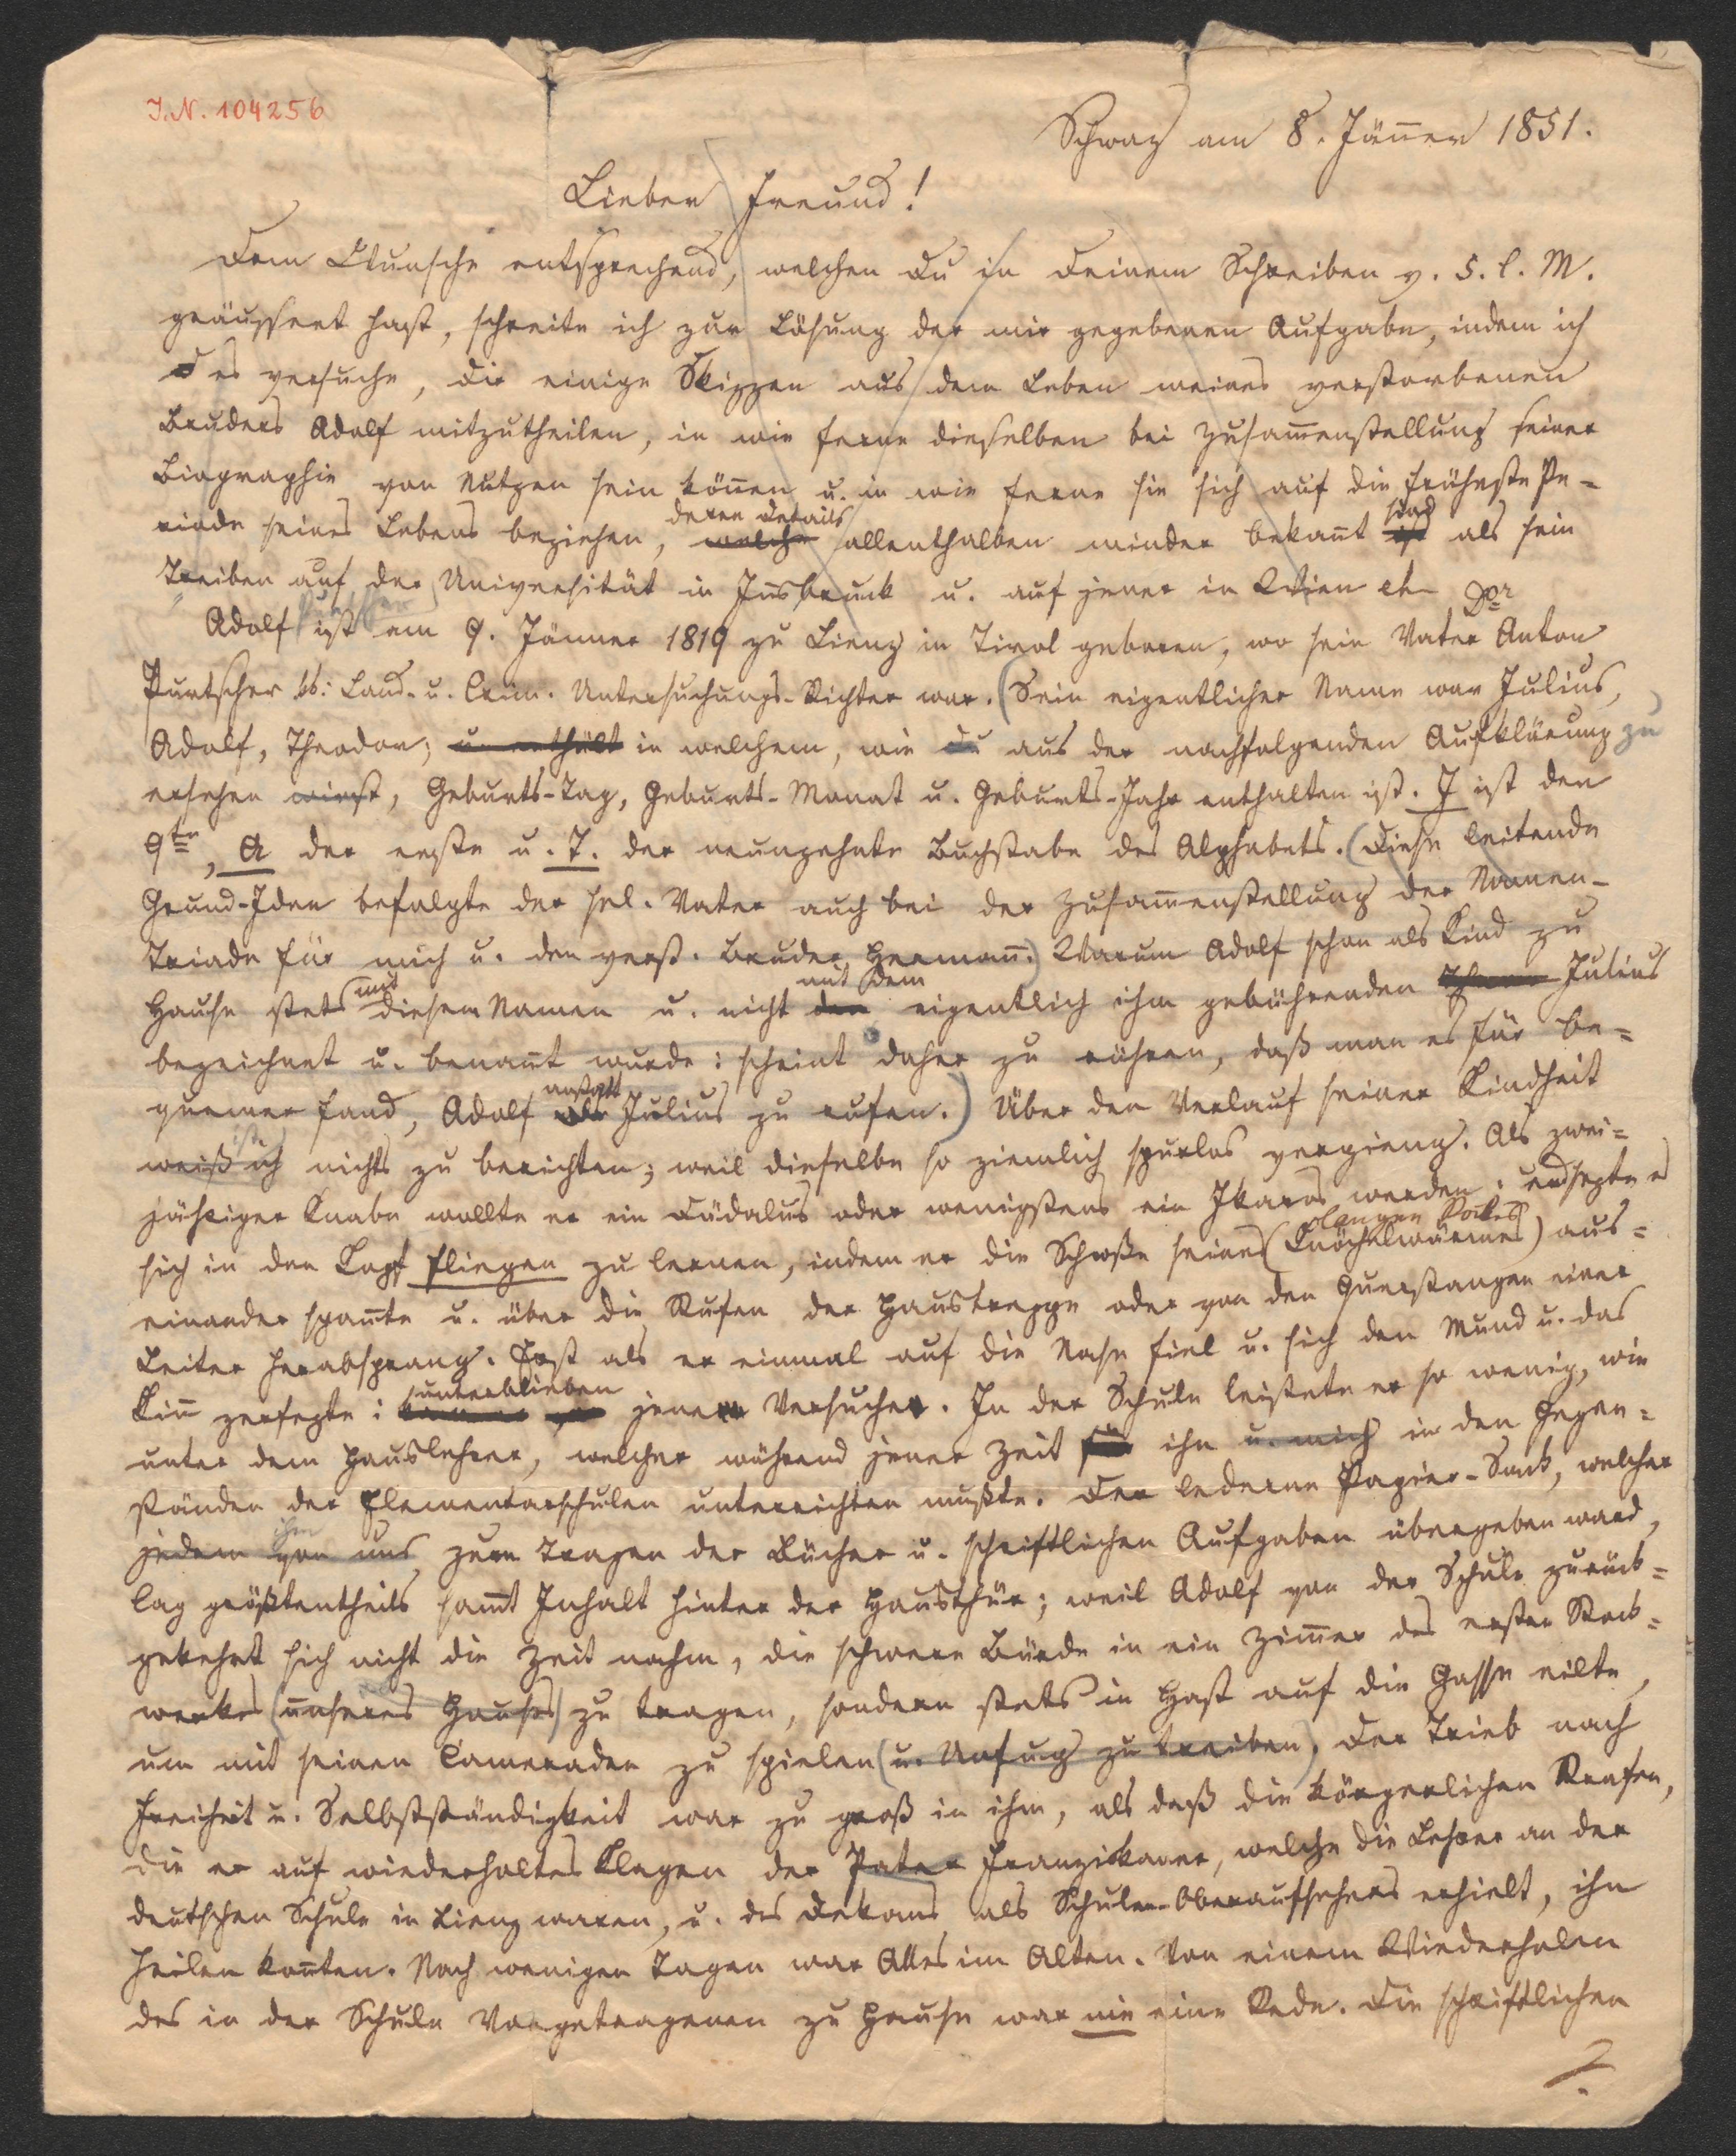 J.N. 104256
Schwaz am 8. Jänner 1851.
Lieber Freund!
Dem Wunsche entsprechend, welchen Du in Deinem Schreiben v. 5. l. M.
geäussert hast, schreite ich zur Lösung der mir gegebenen Aufgabe, indem ich
es versuche, Dir einige Skizzen aus dem Leben meines verstorbenen
Bruders Adolf mitzutheilen, in wie ferne dieselben bei Zusam̄enstellung seiner
Biographie von Nutzen sein kön̄en u. in wie ferne sie sich auf die früheste Pe=
deren Details sind
riode seines Lebens beziehen, welche allenthalben minder bekan̄t ist als sein
Treiben auf der Universität in In̄sbruck u. auf jener in Wien etc
Adolf ist am 9. Jänner 1819 zu Lienz in Tirol geboren, wo sein Vater Dor Anton
Purtscher kk: Land- u. Crim. Untersuchungs-Richter war. (Sein eigentlicher Name war Julius,
Adolf, Theodor, u. enthält in welchem, wie Du aus der nachfolgenden Aufklärung zu
ersehen wirst, Geburts-Tag, Geburts-Monat u. Geburts-Jahr enthalten ist. J ist der
9te, A der erste u. T. der neunzehnte Buchstabe des Alphabets. (Diese leitende
Grund-Idee befolgte der sel. Vater auch bei der Zusam̄enstellung der Namen-
Triade für mich u. den verst. Bruder Herman̄.) Warum Adolf schon als Kind zu
mit mit dem
Hause stets diesem Namen u. nicht den eigentlich ihm gebührenden Julius
bezeichnet u. benan̄t wurde: scheint daher zu rühren, daß man es für be=
anstatt
quemer fand, Adolf als Julius zu rufen.) Über den Verlauf seiner Kindheit
ist
weiß ich nichts zu berichten; weil dieselbe so ziemlich spurlos vergieng. Als zwei=
jähriger Knabe wollte er ein Dädalus oder wenigstens ein Ikaros werden: und setzte es
langen Rockes
sich in den Kopf fliegen zu lernen, indem er die Schoße seines (Knöchelwärmers) aus=
einander span̄te u. über die Stufen der Haustreppe oder von den Querstangen einer
Leiter herabsprang. Erst als er einmal auf die Nase fiel u. sich den Mund u. das
unterblieben
Kin̄ zerfetzte: jene Versuche. In der Schule leistete er so wenig, wie
unter dem Hauslehrer, welcher während jener Zeit für ihn u. mich in den Gegen=
ständen der Elementarschulen unterrichten mußte. Der lederne Papier-Sack, welcher
ihm
jedem von uns zum Tragen der Bücher u. schriftlichen Aufgaben übergeben ward,
lag größtentheils sam̄t Inhalt hinter der Hausthür; weil Adolf von der Schule zurück=
gekehrt sich nicht die Zeit nahm, die schwere Bürde in ein Zim̄er des ersten Stock=
werkes (unseres Hauses) zu tragen, sondern stets in Hast auf die Gasse eilte,
um mit seinen Cameraden zu spielen (u. Unfug zu treiben). Der Trieb nach
Freiheit u. Selbstständigkeit war zu groß in ihm, als daß die körperlichen Strafen,
die er auf wiederholtes Klagen der Pater Franziskaner, welche die Lehrer an der
deutschen Schule in Lienz waren, u. des Dekans als Schulen-Oberaufsehers erhielt, ihn
heilen kon̄ten. Nach wenigen Tagen war Alles im Alten. Von einem Wiederholen
des in der Schule Vorgetragenen zu Hause war nie eine Rede. Die schriftlichen